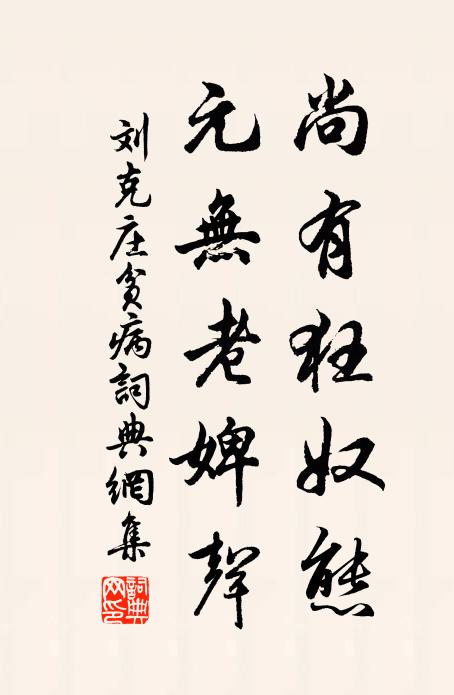 尚有狂奴態
元無老婢聲
刘克庄貧病詞典網集
詞典網印